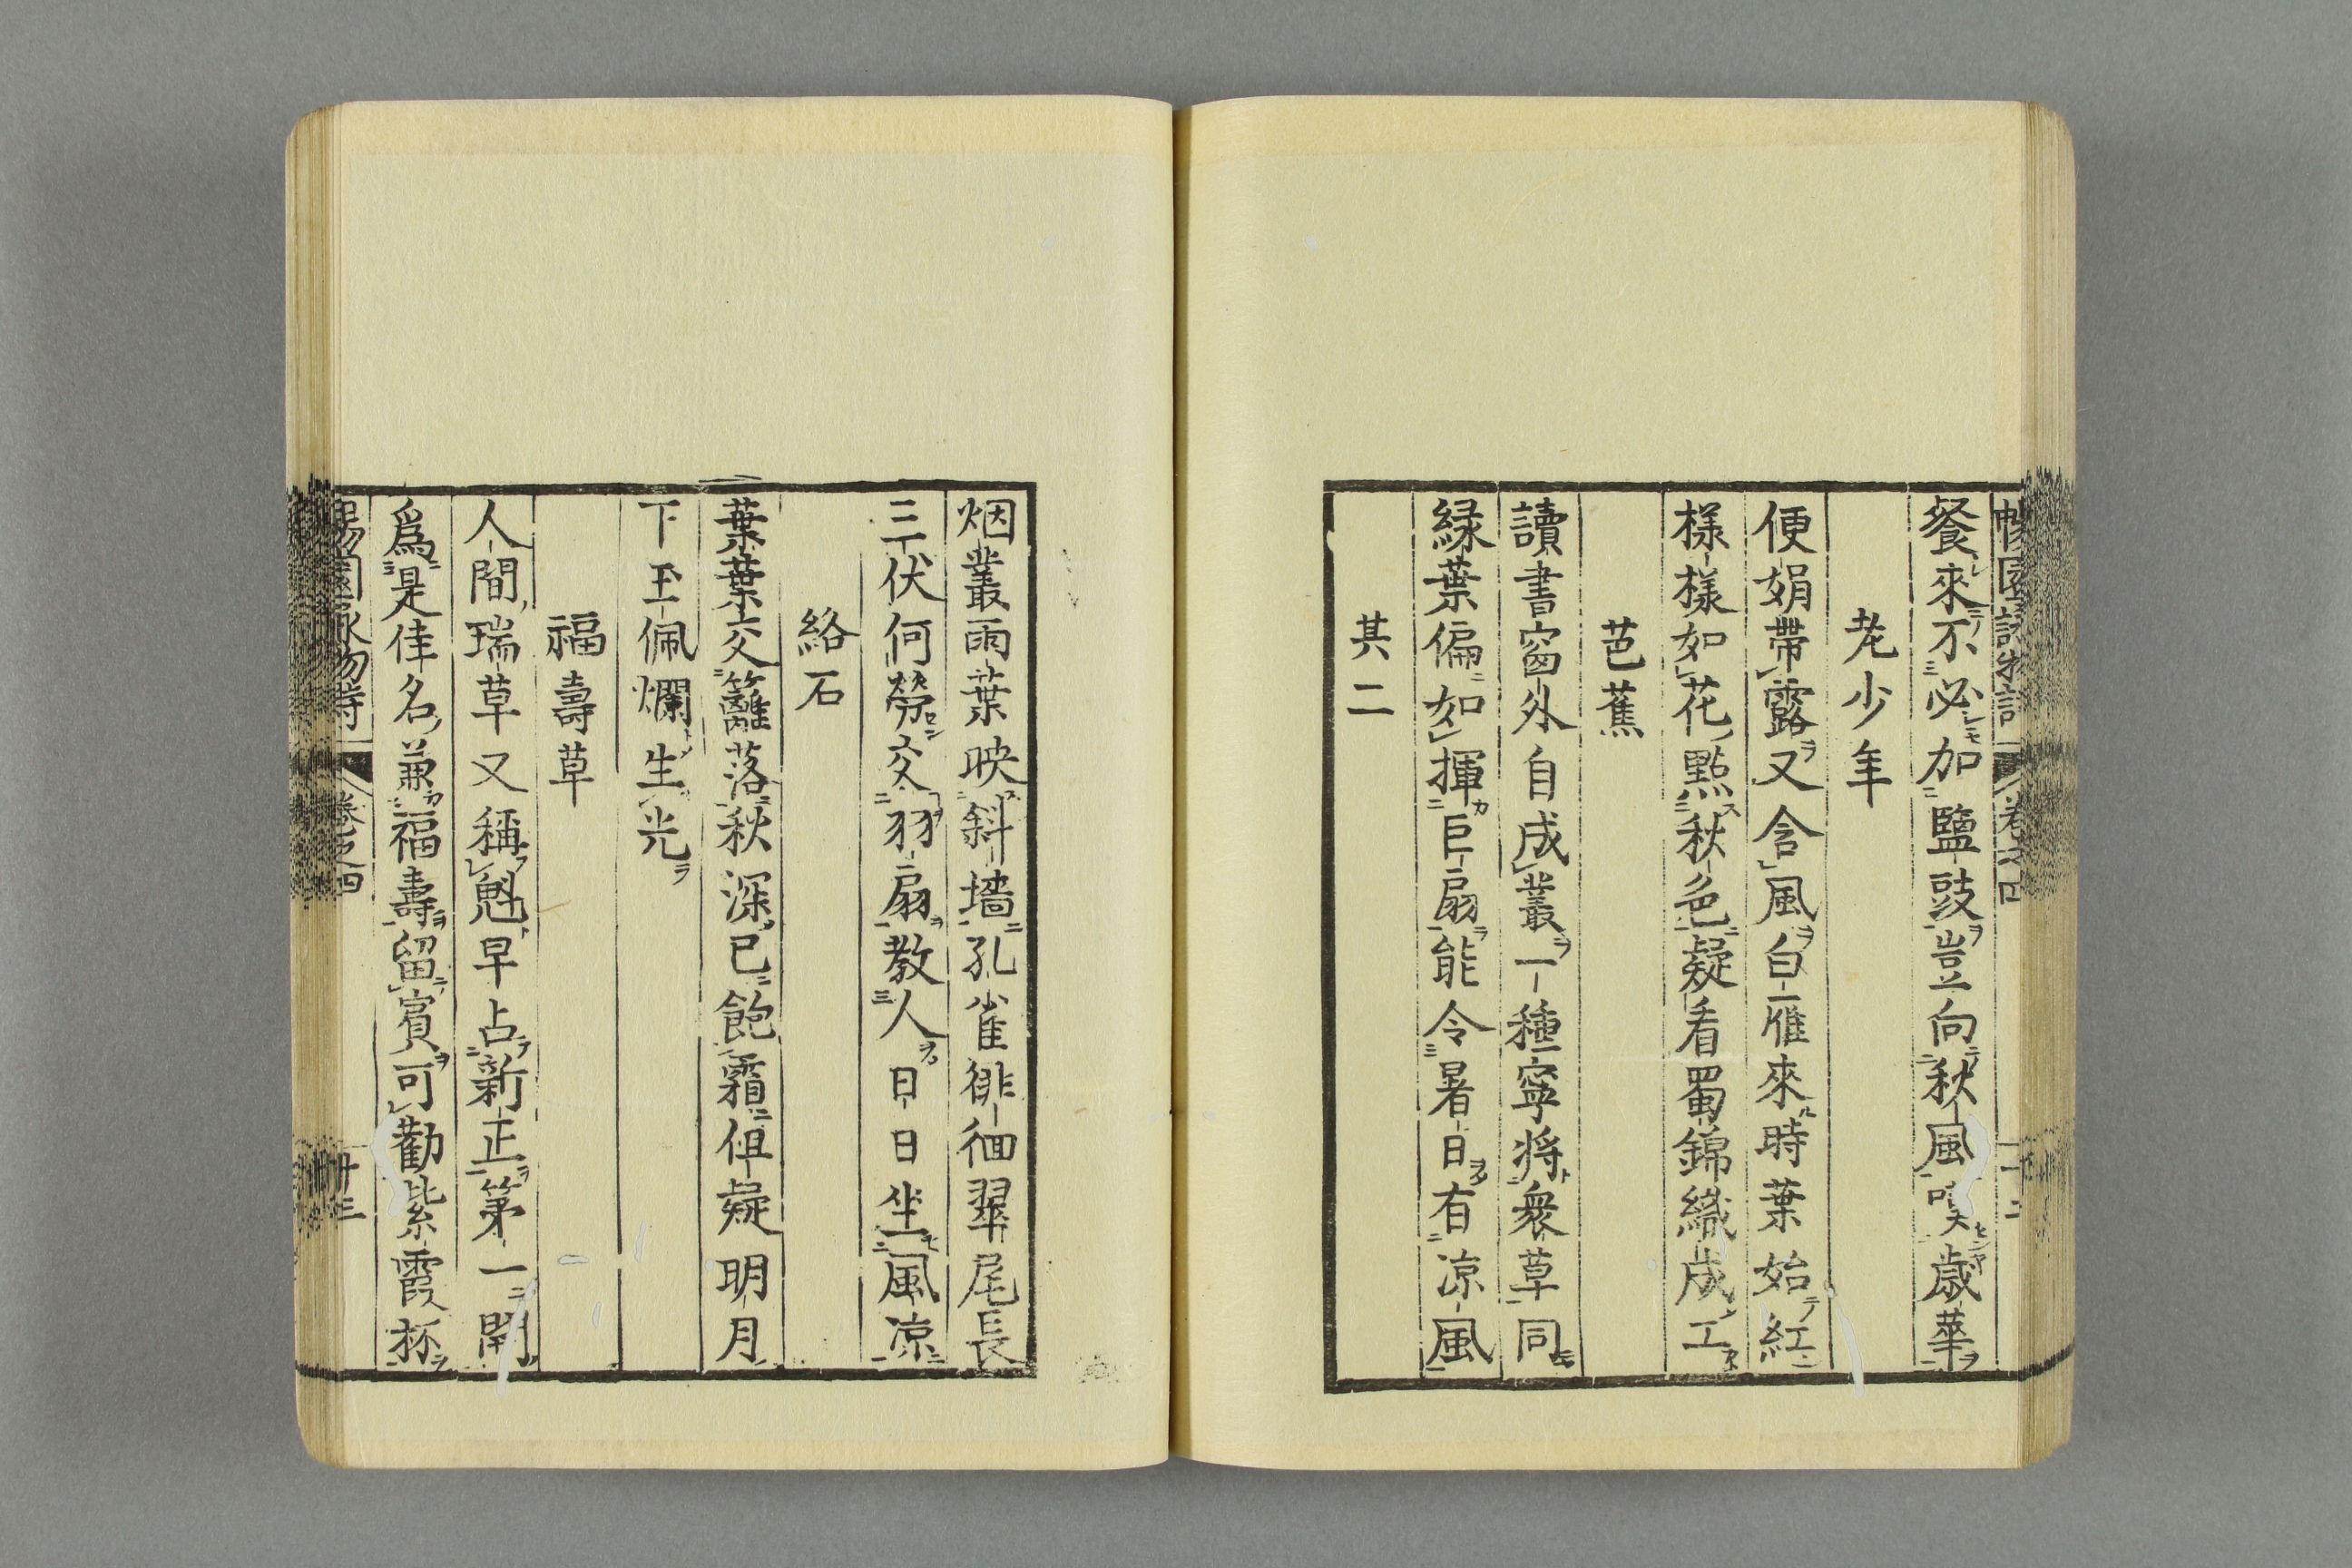 餐來不必加鹽豉豈向秋風嘆歲華
老少年
便娟帶露又含風白雁來時葉始紅
樣樣如花點秋色疑看蜀錦織成工
芭蕉
讀書窗外自成叢一種寧將衆草同
緑葉偏如揮巨扇能令暑日有凉風
其二
烟叢雨葉映斜墻孔雀徘徊翠尾長
三伏何勞交羽扇教人日日坐風凉
絡石
葉葉交籬落秋深已飽霜但疑明月
下玉佩爛生光
福壽草
人間瑞草又稱魁早占新正第一開
爲是佳名兼福壽留賓可勸紫霞杯
卷之四
卅三